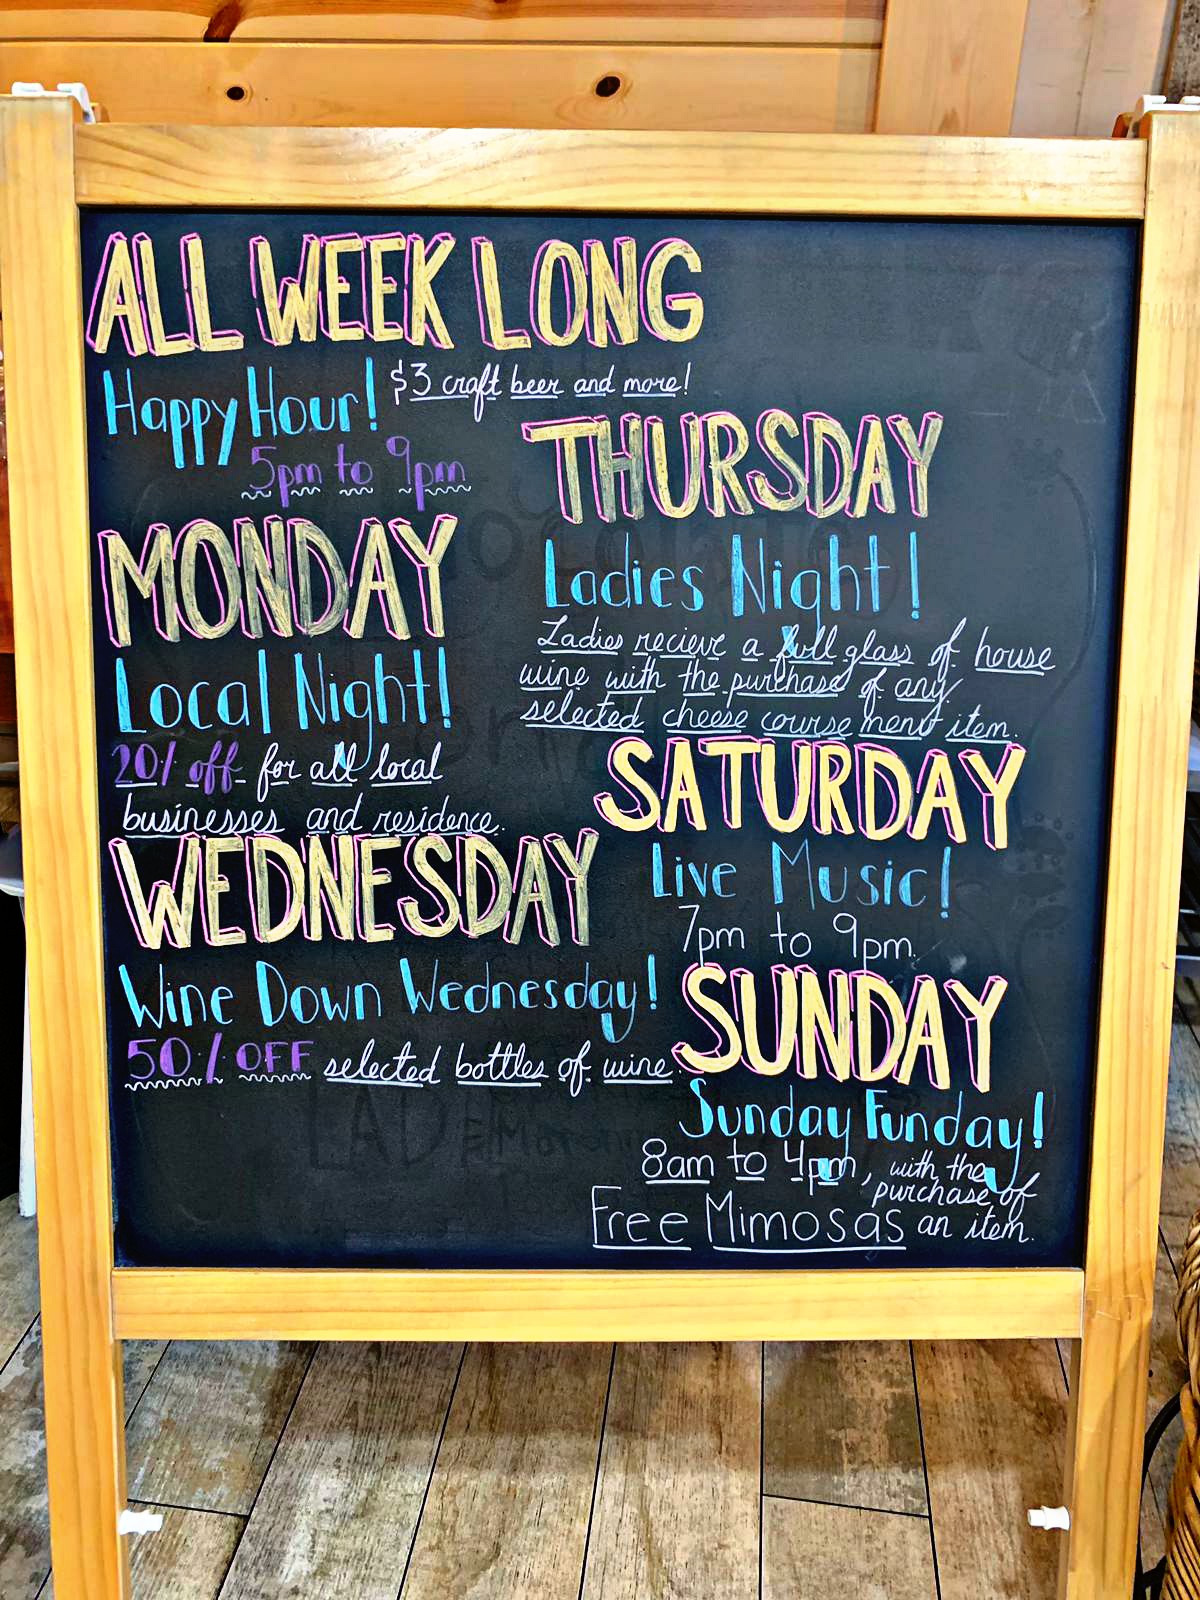 ALL WEEK LONG
Happy Hour! $3 craft beer and more!
5pm to 9pm
MONDAY
Local Night!
20% off for all local
businesses and residence.
WEDNESDAY
Wine Down Wednesday!
50% OFF selected bottles of wine.
THURSDAY
Ladies Night!
Ladies recieve a full glass of house
wine with the purchase of any
selected cheese course menu item.
SATURDAY
Live Music!
7pm to 9pm.
SUNDAY
Sunday Funday!
8am to 4pm, with the
purchase of
Free Mimosas an item.